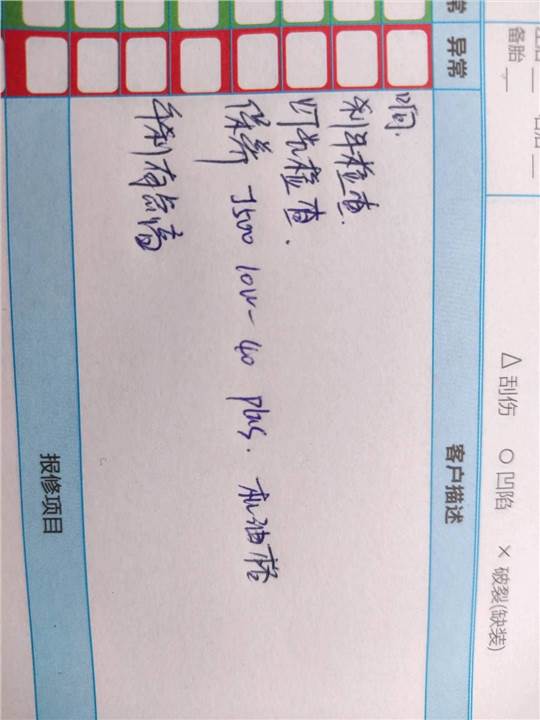 备胎
△ 刮伤 ○ 凹陷 × 破裂(缺装)
常 异常
客户描述
时间.
刹车检查.
灯光检查.
保养 J500 10w-40 plus. 机油格
手刹有点高
报修项目